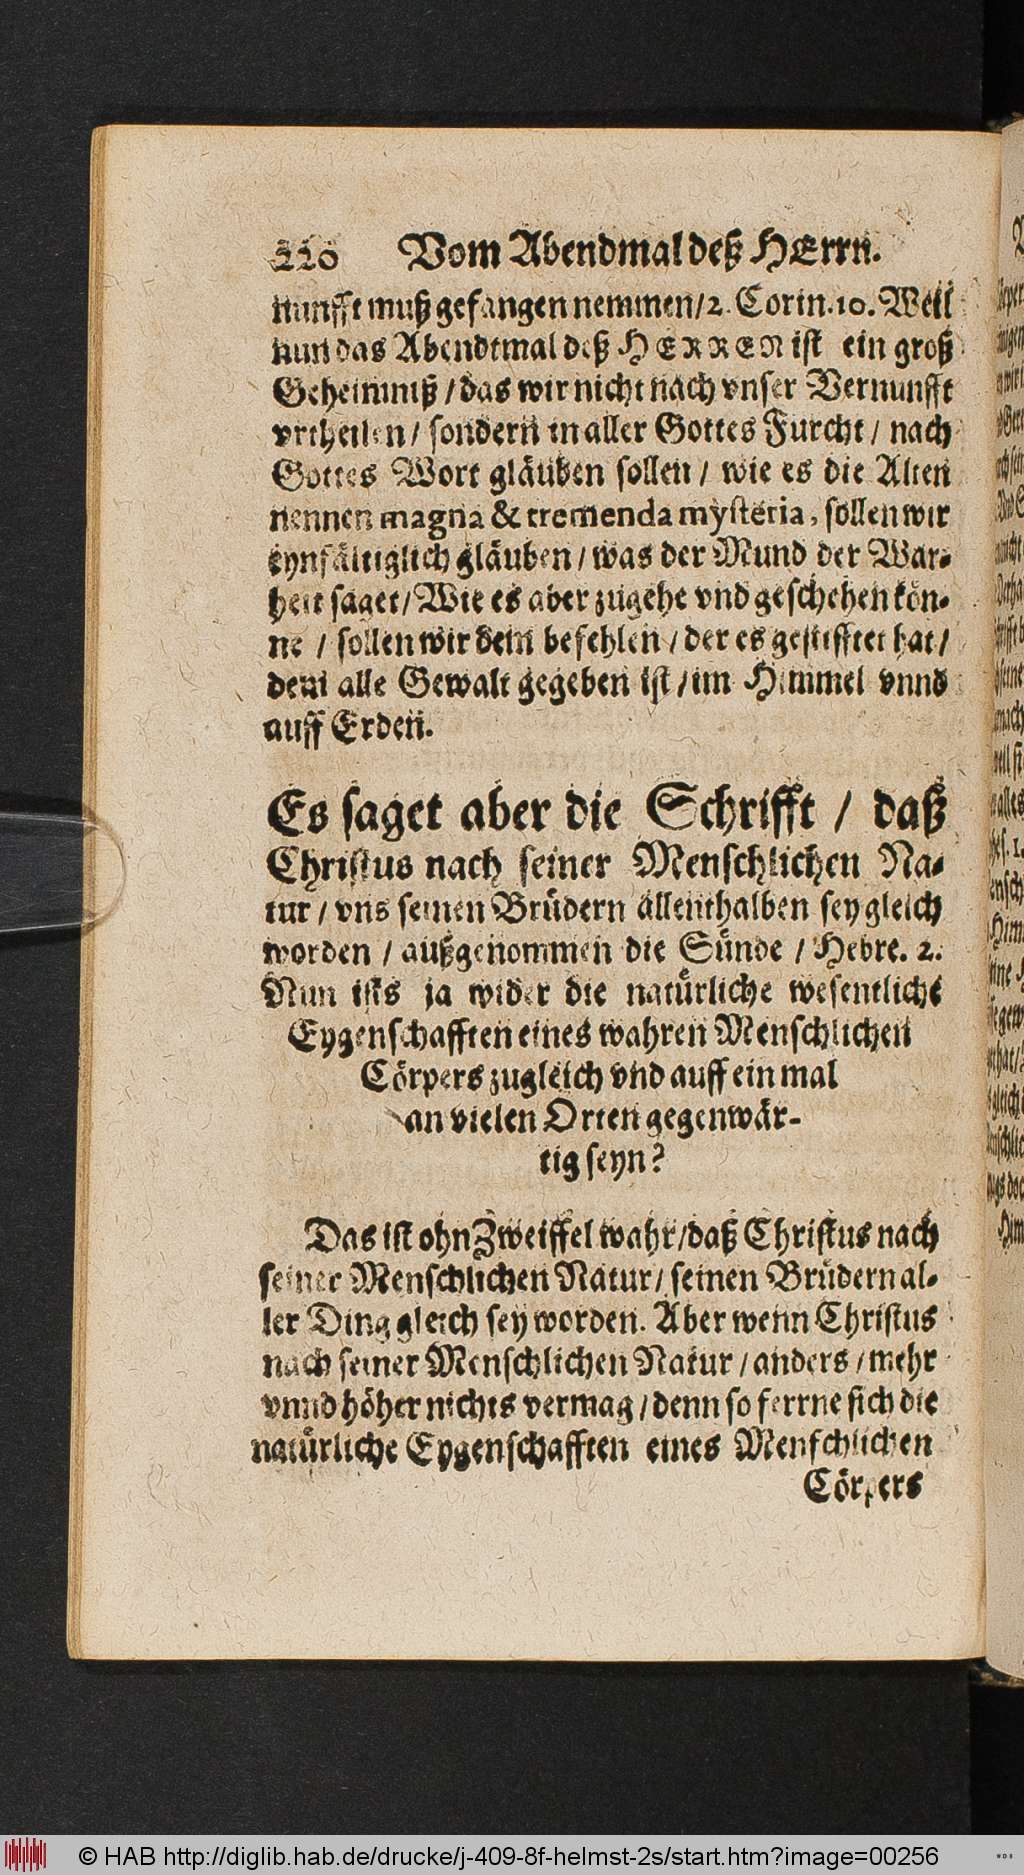 220 Vom Abendmal deß HErrn.
nunfft muß gefangen nemmen/2. Corin.10. Weil
nun das Abendtmal deß HERREN ist ein groß
Geheimniß / das wir nicht nach vnser Vernunfft
vrtheilen / sondern in aller Gottes Furcht / nach
Gottes Wort gläuben sollen / wie es die Alten
nennen magna & tremenda mysteria, sollen wir
eynfältiglich gläuben / was der Mund der War-
heit saget / Wie es aber zugehe vnd geschehen kön-
ne / sollen wir dem befehlen / der es gestifftet hat /
dem alle Gewalt gegeben ist / im Himmel vnnd
auff Erden.
Es saget aber die Schrifft / daß
Christus nach seiner Menschlichen Na-
tur / vns seinen Brüdern allenthalben sey gleich
worden / außgenommen die Sünde / Hebre. 2.
Nun ists ja wider die natürliche wesentliche
Eygenschafften eines wahren Menschlichen
Cörpers zugleich vnd auff ein mal
an vielen Orten gegenwär-
tig seyn?
Das ist ohn Zweiffel wahr/daß Christus nach
seiner Menschlichen Natur / seinen Brüdern al-
ler Ding gleich sey worden. Aber wenn Christus
nach seiner Menschlichen Natur / anders / mehr
vnnd höher nichts vermag / denn so ferrne sich die
natürliche Eygenschafften eines Menschlichen
Cörpers
© HAB http://diglib.hab.de/drucke/j-409-8f-helmst-2s/start.htm?image=00256